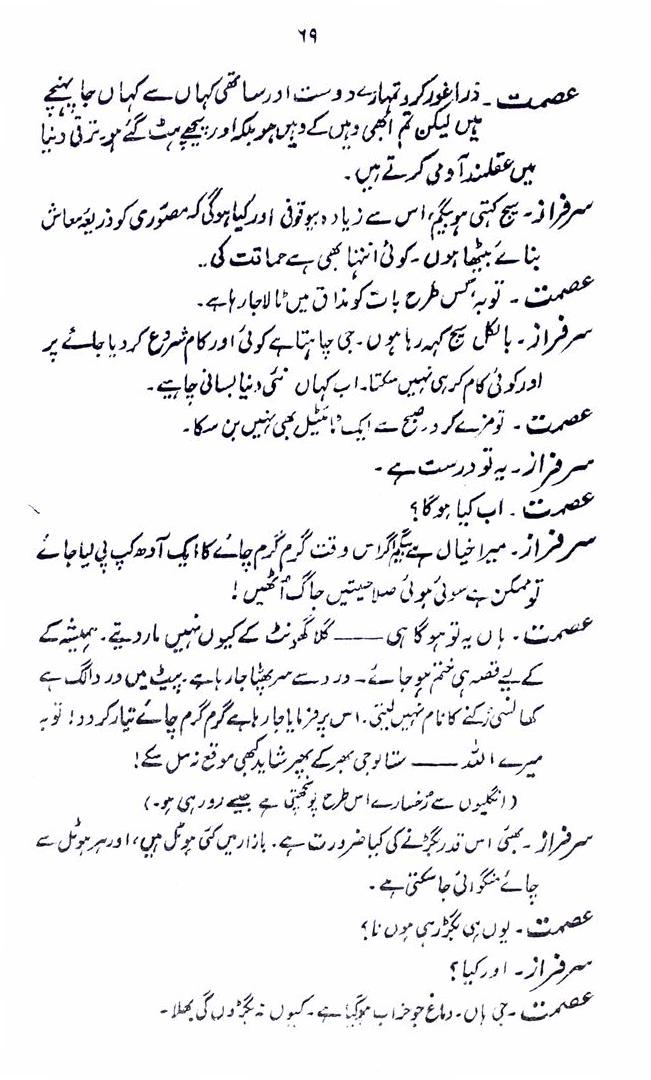 ۶۹
عصمت ۔ ذرا غور کرو تمہارے دوست اور ساتھی کہاں سے کہاں جا پہنچے
ہیں لیکن تم ابھی وہیں کے وہیں ہو بلکہ اور پیچھے ہٹ گئے ہو۔ ترقی دنیا
میں عقلمند آدمی کرتے ہیں۔
سرفراز۔ سچ کہتی ہو بیگم، اس سے زیادہ بیوقوفی اور کیا ہوگی کہ مصوّری کو ذریعۂ معاش
بنائے بیٹھا ہوں۔ کوئی انتہا بھی ہے حماقت کی ..
عصمت ۔ توبہ، کس طرح بات کو مذاق میں ٹالا جا رہا ہے۔
سرفراز۔ بالکل سچ کہہ رہا ہوں۔ جی چاہتا ہے کوئی اور کام شروع کر دیا جائے پر
اور کوئی کام کر ہی نہیں سکتا۔ اب کہاں نئی دنیا بسانی چاہیے۔
عصمت ۔ تو مزے کرو۔ صبح سے ایک ٹائٹیل بھی نہیں بن سکا۔
سرفراز۔ یہ تو درست ہے ۔
عصمت ۔ اب کیا ہوگا؟
سرفراز۔ میرا خیال ہے بیگم اگر اس وقت گرم گرم چائے کا ایک آدھ کپ پی لیا جائے
تو ممکن ہے سوئی ہوئی صلاحیتیں جاگ اُٹھیں !
عصمت ۔ ہاں یہ تو ہوگا ہی ـــــ گلا گھونٹ کے کیوں نہیں مار دیتے۔ ہمیشہ کے
کے لیے قصہ ہی ختم ہو جائے۔ درد سے سر پھٹا جا رہا ہے۔ پیٹ میں درد الگ ہے
کھانسی رُکنے کا نام نہیں لیتی۔ اس پر فرمایا جا رہا ہے گرم گرم چائے تیار کر دو! توبہ
میرے اللہ ـــــ ستا لو جی بھر کے پھر شاید کبھی موقع نہ مل سکے!
(انگلیوں سے رُخسارے اس طرح پونچھتی ہے جیسے رو رہی ہو۔)
سرفراز۔ بھئی اس قدر بگڑنے کی کیا ضرورت ہے۔ بازار میں کئی ہوٹل ہیں، اور ہر ہوٹل سے
چائے منگوائی جا سکتی ہے ۔
عصمت ۔ یوں ہی بگڑ رہی ہوں نا؟
سرفراز۔ اور کیا؟
عصمت ۔ جی ہاں۔ دماغ جو خراب ہو گیا ہے۔ کیوں نہ بگڑوں گی بھلا۔